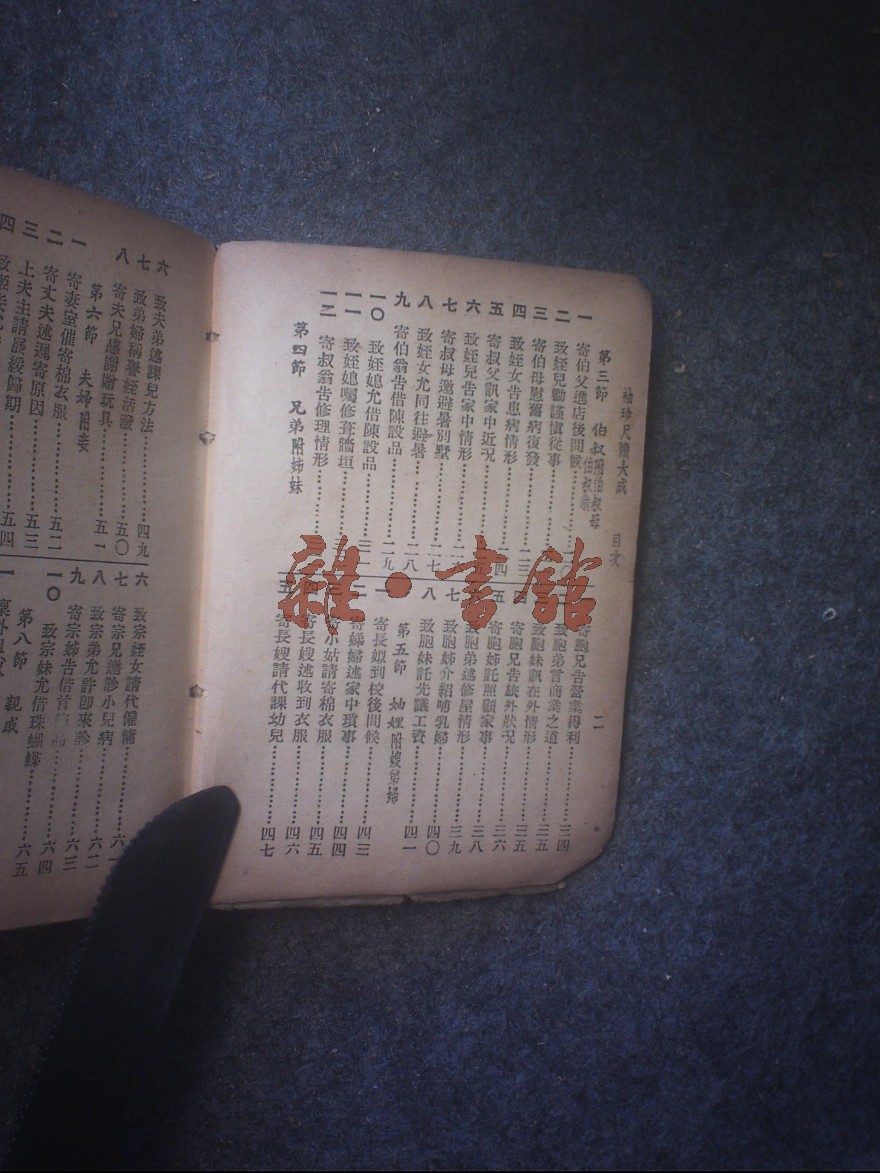 袖珍尺牘大成 目次 二
第三節 伯叔附伯叔母
一 寄伯父進店後問候
二 致姪兒勸謹慎從事
三 寄伯母慰舊病復發
四 致姪女告患病情形
五 寄叔父訊家中近況
六 致姪兒告家中情形
七 寄叔母邀避暑別墅
八 致姪女允同往避暑 二八
九 寄伯翁告借陳設品 二九
一〇 致姪媳允借陳設品
一一 致姪媳囑修葺牆垣
一二 寄叔翁告修理情形
第四節 兄弟附姊妹
寄胞兄告營業得利 三四
致胞弟言商業之道 三五
致胞妹訊在外情形 三五
四 寄胞兄告旅外狀況 三六
五 寄胞姊託照顧家事
致胞弟述修屋情形 三八
七 致胞姊介紹哺乳婦 三九
八 致胞妹託先議工資 四〇
第五節 妯娌附嫂弟婦 四一
一 寄長姒到校後問候 四三
寄娣婦述家中瑣事 四四
寄小姑請寄棉衣服 四五
寄長嫂述收到衣服 四六
五 寄長嫂請代課幼兒 四七
六 致夫弟述課兒方法 四九
七 致弟婦稱譽姪活潑 五〇
八 寄夫兄感謝贈玩具 五一
第六節 夫婦附妾
一 寄妻室催寄棉衣服 五二
二 寄丈夫述遲寄原因 五三
三 上夫主請展緩歸期 五四
四
六 致宗姪女請代僱傭
七 寄宗兄邀診小兒病 六二
八 致宗弟允許即來診 六三
九 寄宗姊告借首飾品 六四
一〇 致宗妹允借珠蝴蝶 六五
第八節 親戚
一
雜·書館